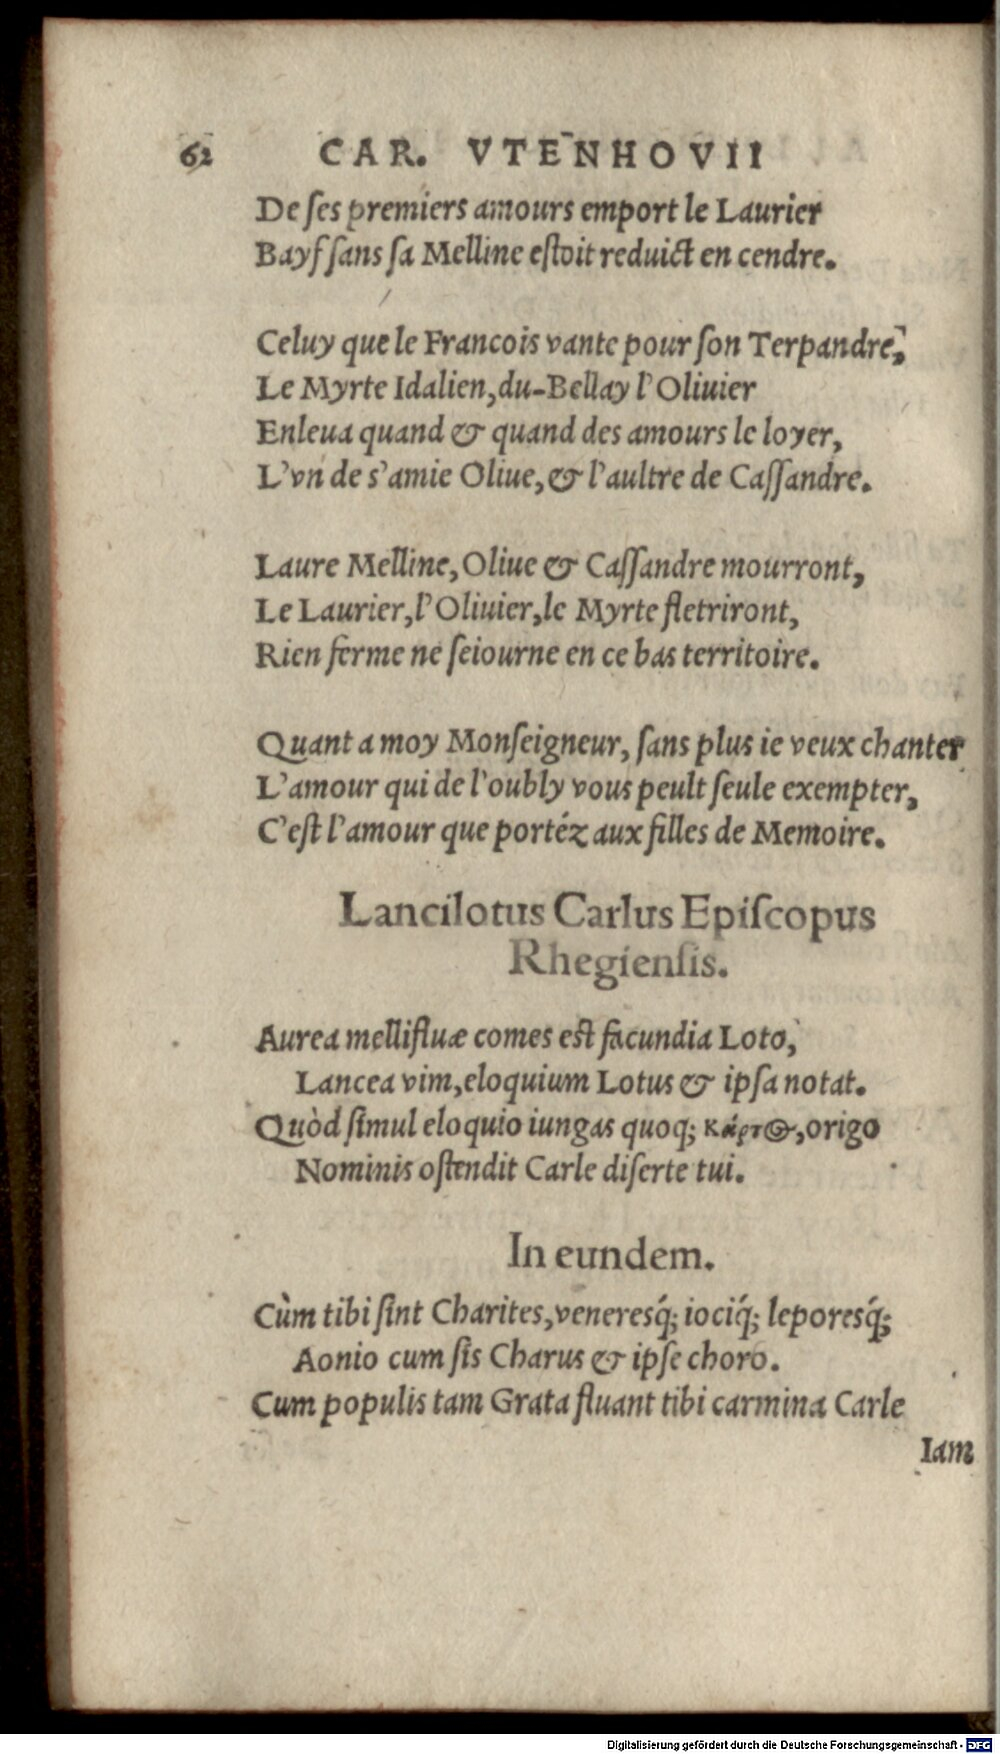 62 CAR. VTENHOVII
De ſes premiers amours emport le Laurier
Bayf ſans ſa Melline eſtoit reduict en cendre.
Celuy que le Francois vante pour ſon Terpandre,
Le Myrte Idalien, du-Bellay l'Oliuier
Enleua quand & quand des amours le loyer,
L'vn de s'amie Oliue, & l'aultre de Caſſandre.
Laure Melline, Oliue & Caſſandre mourront,
Le Laurier, l'Oliuier, le Myrte fletriront,
Rien ferme ne ſeiourne en ce bas territoire.
Quant a moy Monſeigneur, ſans plus ie veux chanter
L'amour qui de l'oubly vous peult ſeule exempter,
C'eſt l'amour que portéz aux filles de Memoire.
Lancilotus Carlus Epiſcopus
Rhegienſis.
Aurea mellifluæ comes eſt facundia Loto,
Lancea vim, eloquium Lotus & ipſa notat.
Quòd ſimul eloquio iungas quoq; κάρτος, origo
Nominis oſtendit Carle diſerte tui.
In eundem.
Cùm tibi ſint Charites, veneresq́; iociq́; leporesq́;
Aonio cum ſis Charus & ipſe choro.
Cum populis tam Grata fluant tibi carmina Carle
Iam
Digitalisierung gefördert durch die Deutsche Forschungsgemeinschaft - DFG